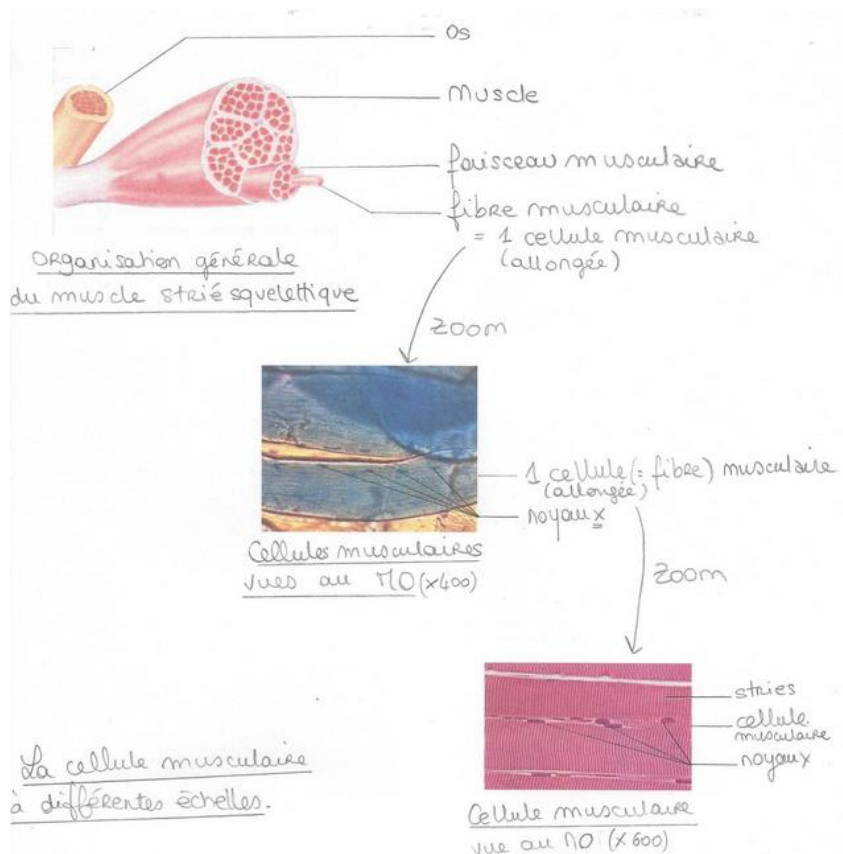 os
muscle
faisceau musculaire
fibre musculaire
= 1 cellule musculaire
(allongée)
organisation générale
du muscle strié squelettique
zoom
1 cellule (= fibre) musculaire
(allongée)
noyaux
Cellules musculaires
vues au MO (x400)
zoom
stries
cellule
musculaire
noyaux
Cellule musculaire
vue au MO (x600)
La cellule musculaire
à différentes échelles.